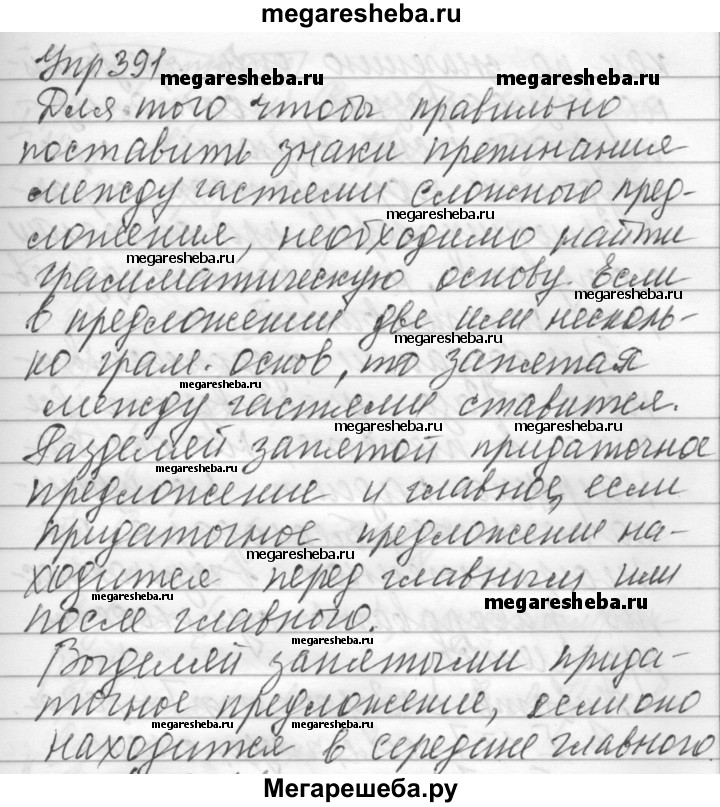 megaresheba.ru
Упр 391
megaresheba.ru megaresheba.ru
Для того чтобы правильно
поставить знаки препинания
между частями сложного пред-
megaresheba.ru
ложения, необходимо найти
megaresheba.ru
грамматическую основу. Если
megaresheba.ru
в предложении две или несколь-
ко грам. основ, то запятая
megaresheba.ru
между частями ставится.
megaresheba.ru
Разделяй запятой придаточное
megaresheba.ru
предложение и главное, если
придаточное предложение на-
megaresheba.ru
ходится перед главным или
megaresheba.ru megaresheba.ru
после главного.
megaresheba.ru
Выделяй запятыми прида-
точное предложение, если оно
megaresheba.ru megaresheba.ru
находится в середине главного
Мегарешеба.ру